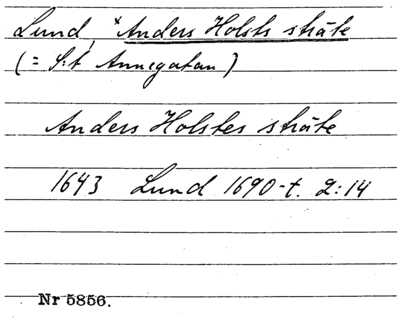 Lund, *Anders Holsts sträte
(= S:t Annegatan)
Anders Holstes sträte
1643 Lund 1690-t. 2:14
Nr 5856.